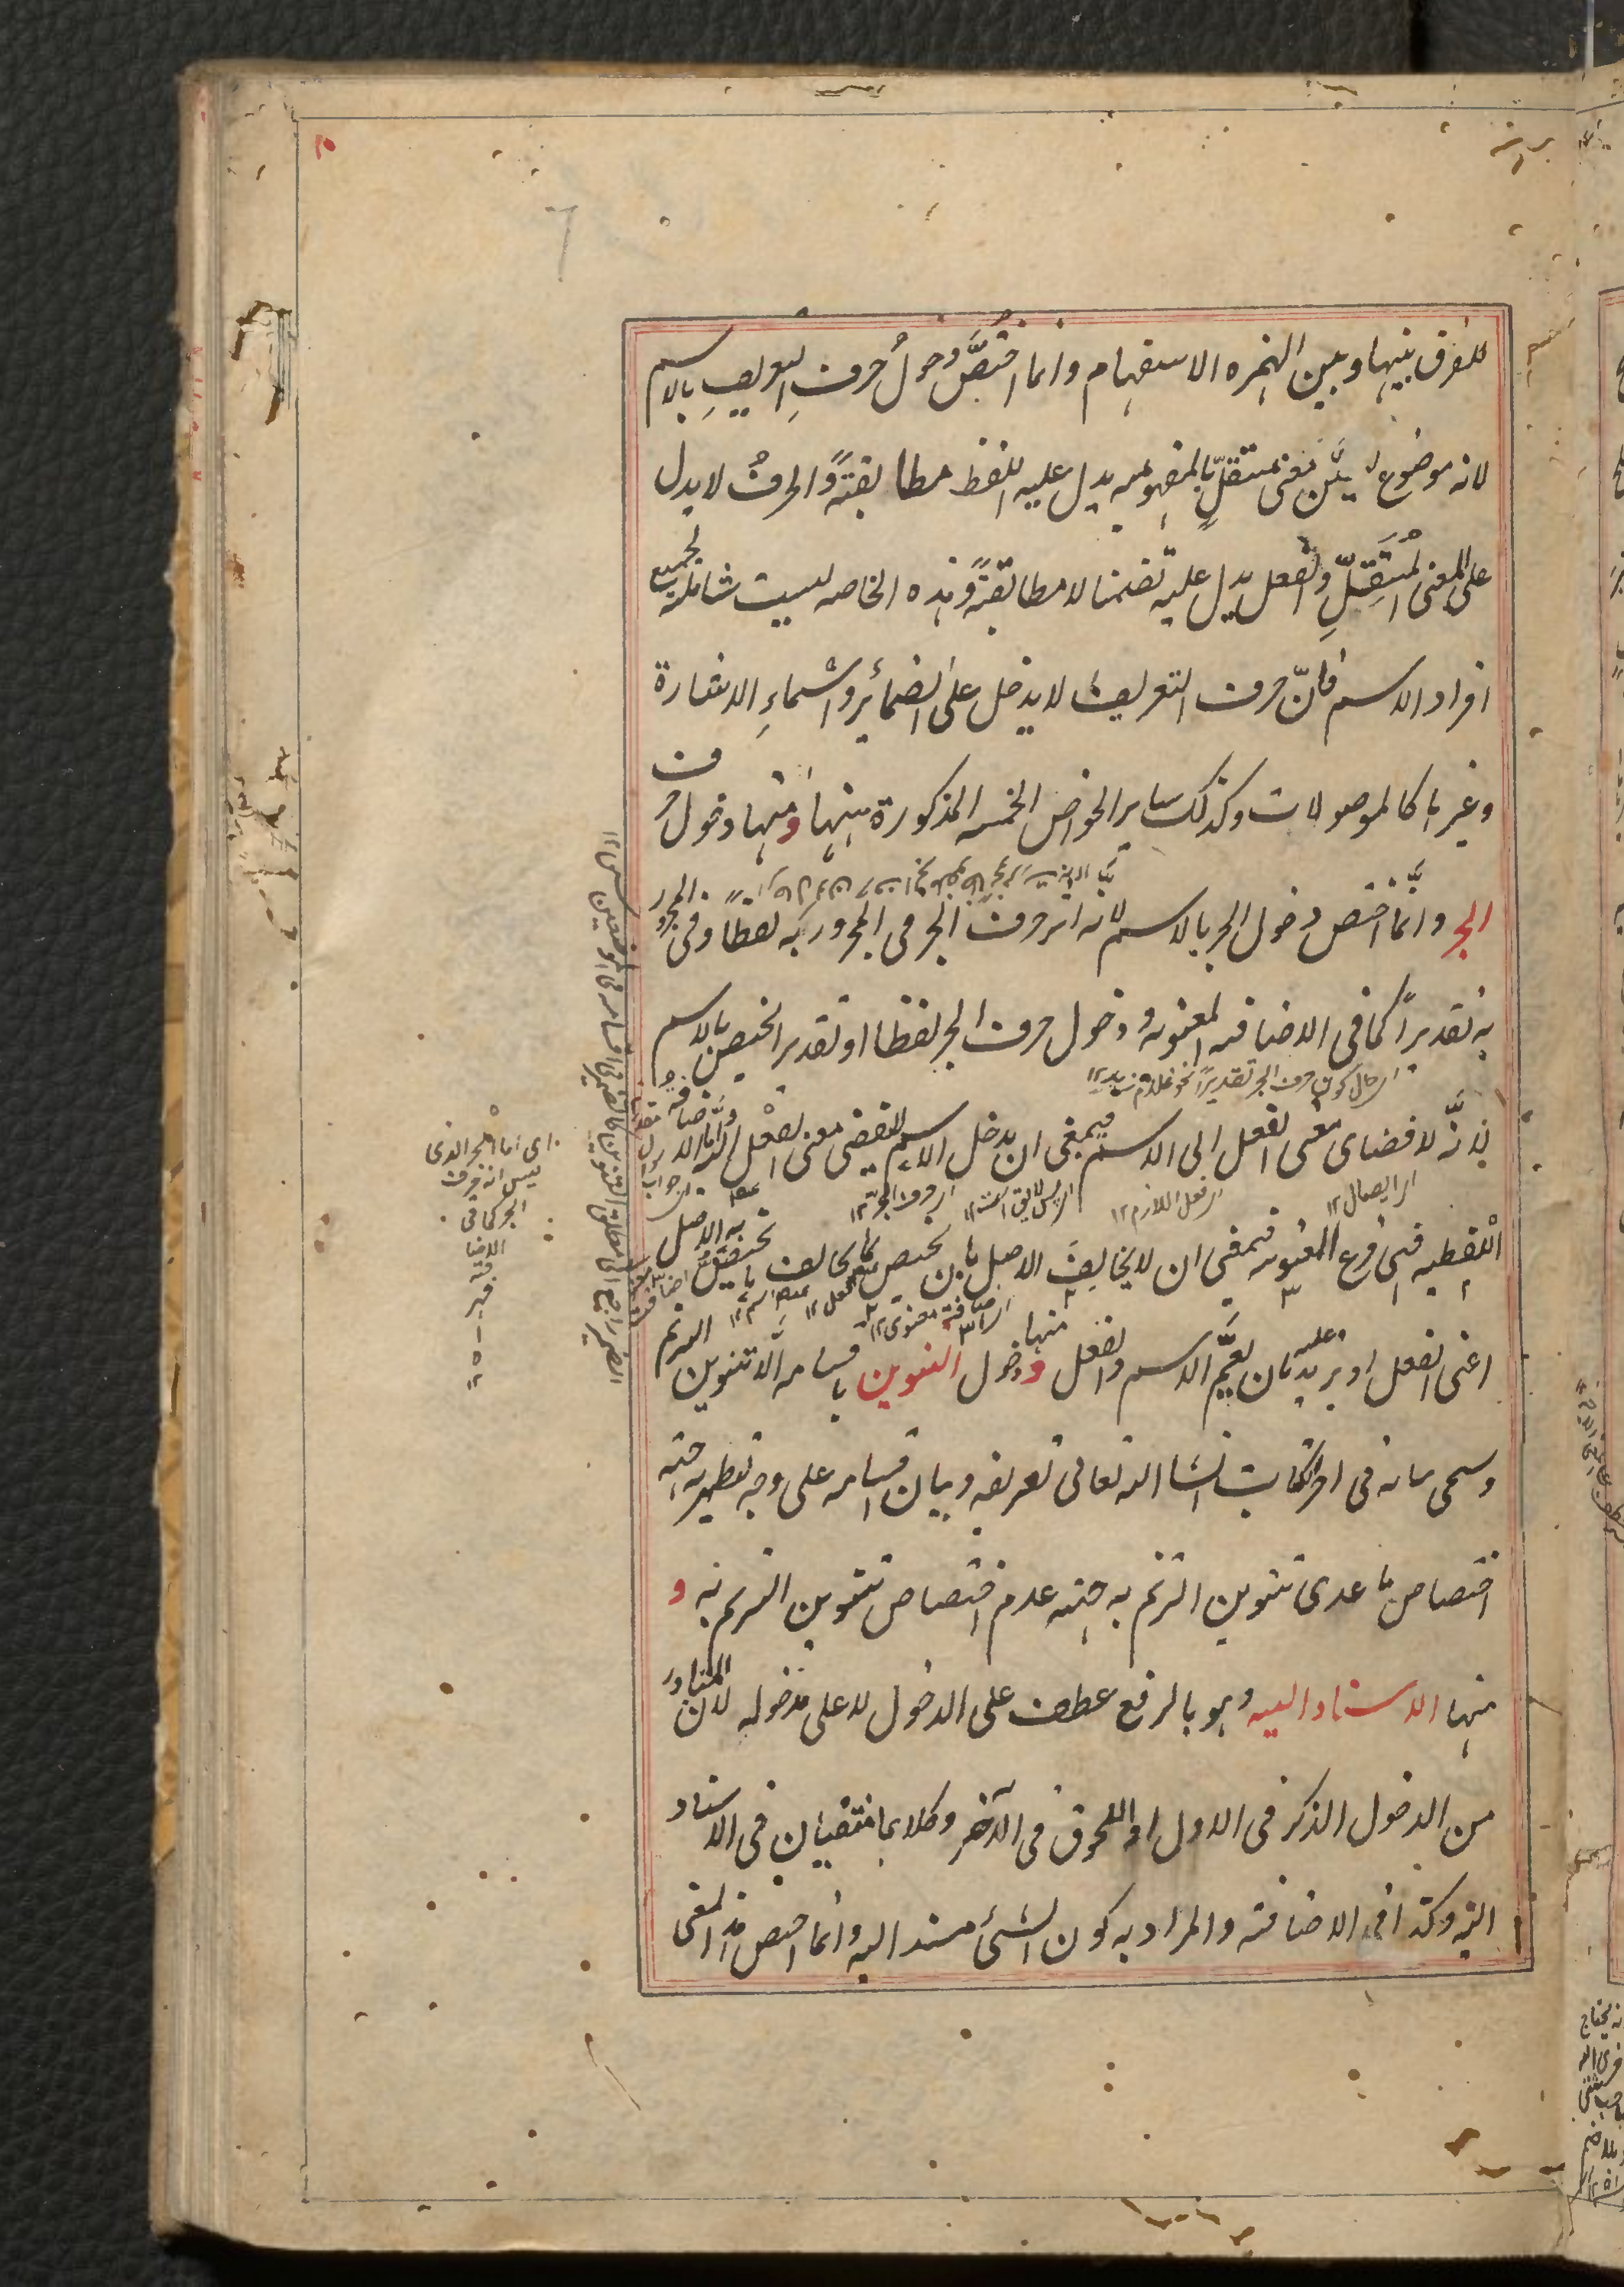 للفرق بينها وبين الهمزه الاستفهام وانما اختُصَّ دخولُ حرفِ التعريفِ بالاسم
لانه موضوع لتعيّن معنى مستقلٍّ بالمفهوميه يدل عليه اللفظ مطابقةً والحرفُ لا يدل
على المعنى المُستَقِلِّ والفعل يدل عليه تضمنا لا مطابقةً وهذه الخاصه ليست شاملة لجميع
افراد الاسم فانّ حرف التعريف لا يدخل على الضمائر واسماءِ الاشارة
وغيرها كالموصولات وكذلك ساير الخواص الخمسه المذكورة ههنا ومنها دخول حرف
الجر وانّما اختص دخول الجر بالاسم لانه اثر حرف الجر فى المجرور به لفظًا وفى المجرور
به تقديرًا كما فى الاضافه المعنويه ودخول حرف الجر لفظا او تقديرا يختص بالاسم
اى حال كون حرف الجر تقديرًا نحو غلام زيد ١٢
لانَّه لافضاى معنى الفعل الى الاسم فينبغى ان يدخل الاسم ليفضى معنى الفعل اليه وامّا الاضافةُ
اى ايصال ١٢ اى فعل اللازم ١٢ اى حرف الجر ١٢
اللفظيه فهى فرع المعنويه فينبغى ان لا يخالِفَ الاصل بان يختص بما يخالف ما يختصُّ به الاصل
اى اضافة معنوى ١٢
اعنى الفعل او يزيد عليه بان يعمَّ الاسم والفعل و منها دخول التنوين باقسامه الّا تنوين الترنم
وسيجى بيانه فى اخر الكتاب انشا الله تعالى تعريفه وبيان اقسامه على وجه يظهر جهة
اختصاص ما عدى تنوين الترنم به جهة عدم اختصاص تنوين الترنم به و
منها الاسناد اليه وهو بالرفع عطف على الدخول لا على مدخوله لان المتبادر
من الدخول الذكر فى الاول او اللحوق فى الآخر وكلاهما منتفيان فى الاسناد
اليه وكذا فى الاضافة والمراد به كون الشئ مسندا اليه وانما اختص هذا المعنى
اى اما الجر الذى
ليس اثر حرف
الجر كما فى
الاضا
فة